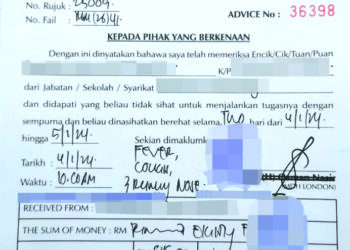 No. Rujuk :
No. Fail :
ADVICE No : 36398
KEPADA PIHAK YANG BERKENAAN
Dengan ini dinyatakan bahawa saya telah memeriksa Encik/Cik/Tuan/Puan
K/P
dari Jabatan / Sekolah / Syarikat
dan didapati yang beliau tidak sihat untuk menjalankan tugasnya dengan
sempurna dan beliau dinasihatkan berehat selama TWO hari dari 4/1/24.
hingga 5/1/24. Sekian dimaklum
FEVER,
Tarikh : 4/1/24. COUGH,
Waktu : 10.00AM RUNNY NOSE.
(MPH LONDON)
RECEIVED FROM :
THE SUM OF MONEY : RM EIGHTY